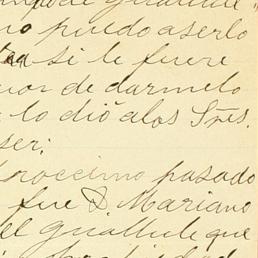 no puedo aserlo
si le fuere
de darmelo
lo dió alos Sres.
ser:
proccimo pasado
fue D. Mariano
el Guallule que